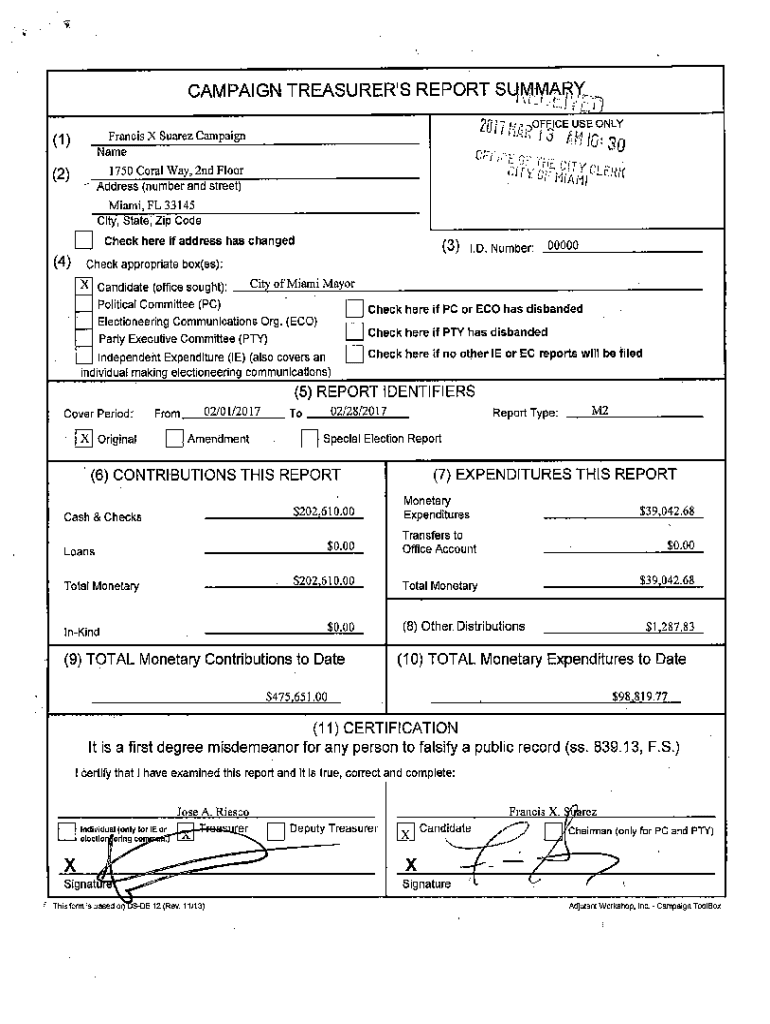 CAMPAIGN TREASURER'S REPORT SUMMARY
RECEIVED
OFFICE USE ONLY
2017 MAR 13 AM 10: 30
OFFICE OF THE CITY CLERK
CITY OF MIAMI
(1) Francis X Suarez Campaign
Name
(2) 1750 Coral Way, 2nd Floor
Address (number and street)
Miami, FL 33145
City, State, Zip Code
Check here if address has changed
(3) I.D. Number: 00000
(4) Check appropriate box(es):
X Candidate (office sought): City of Miami Mayor
Political Committee (PC)
Electioneering Communications Org. (ECO)
Party Executive Committee (PTY)
Independent Expenditure (IE) (also covers an
individual making electioneering communications)
Check here if PC or ECO has disbanded
Check here if PTY has disbanded
Check here if no other IE or EC reports will be filed
(5) REPORT IDENTIFIERS
Cover Period: From 02/01/2017 To 02/28/2017 Report Type: M2
X Original Amendment Special Election Report
(6) CONTRIBUTIONS THIS REPORT
Cash & Checks $202,610.00
Loans $0.00
Total Monetary $202,610.00
In-Kind $0.00
(7) EXPENDITURES THIS REPORT
Monetary
Expenditures $39,042.68
Transfers to
Office Account $0.00
Total Monetary $39,042.68
(8) Other Distributions $1,287.83
(9) TOTAL Monetary Contributions to Date
$475,651.00
(10) TOTAL Monetary Expenditures to Date
$98,819.77
(11) CERTIFICATION
It is a first degree misdemeanor for any person to falsify a public record (ss. 839.13, F.S.)
I certify that I have examined this report and it is true, correct and complete:
Jose A. Riesco
Individual (only for IE or
electioneering comm.) X Treasurer Deputy Treasurer
X
Signature
Francis X. Suarez
X Candidate Chairman (only for PC and PTY)
X
Signature
This form is based on DS-DE 12 (Rev. 11/13)
Adjutant Workshop, Inc. - Campaign ToolBox